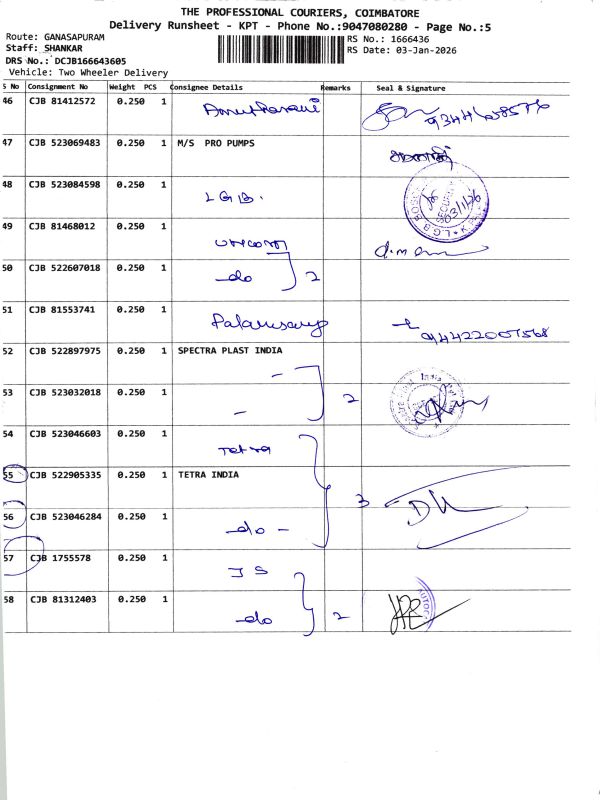 THE PROFESSIONAL COURIERS, COIMBATORE
Delivery Runsheet - KPT - Phone No.:9047080280 - Page No.:5
Route: GANASAPURAM
RS No.: 1666436
Staff: SHANKAR
RS Date: 03-Jan-2026
DRS No.: DCJB166643605
Vehicle: Two Wheeler Delivery
S No Consignment No Weight PCS Consignee Details Remarks Seal & Signature
46 CJB 81412572 0.250 1
47 CJB 523069483 0.250 1 M/S PRO PUMPS
48 CJB 523084598 0.250 1 LGB.
03/1/26
49 CJB 81468012 0.250 1 unicorn
50 CJB 522607018 0.250 1 -do 2
51 CJB 81553741 0.250 1 Palanisamy
9442207568
52 CJB 522897975 0.250 1 SPECTRA PLAST INDIA
-
53 CJB 523032018 0.250 1 - 2
54 CJB 523046603 0.250 1 Tetra
55 CJB 522905335 0.250 1 TETRA INDIA 3
56 CJB 523046284 0.250 1 -do -
57 CJB 1755578 0.250 1 JS
58 CJB 81312403 0.250 1 -do 2
AUTOC